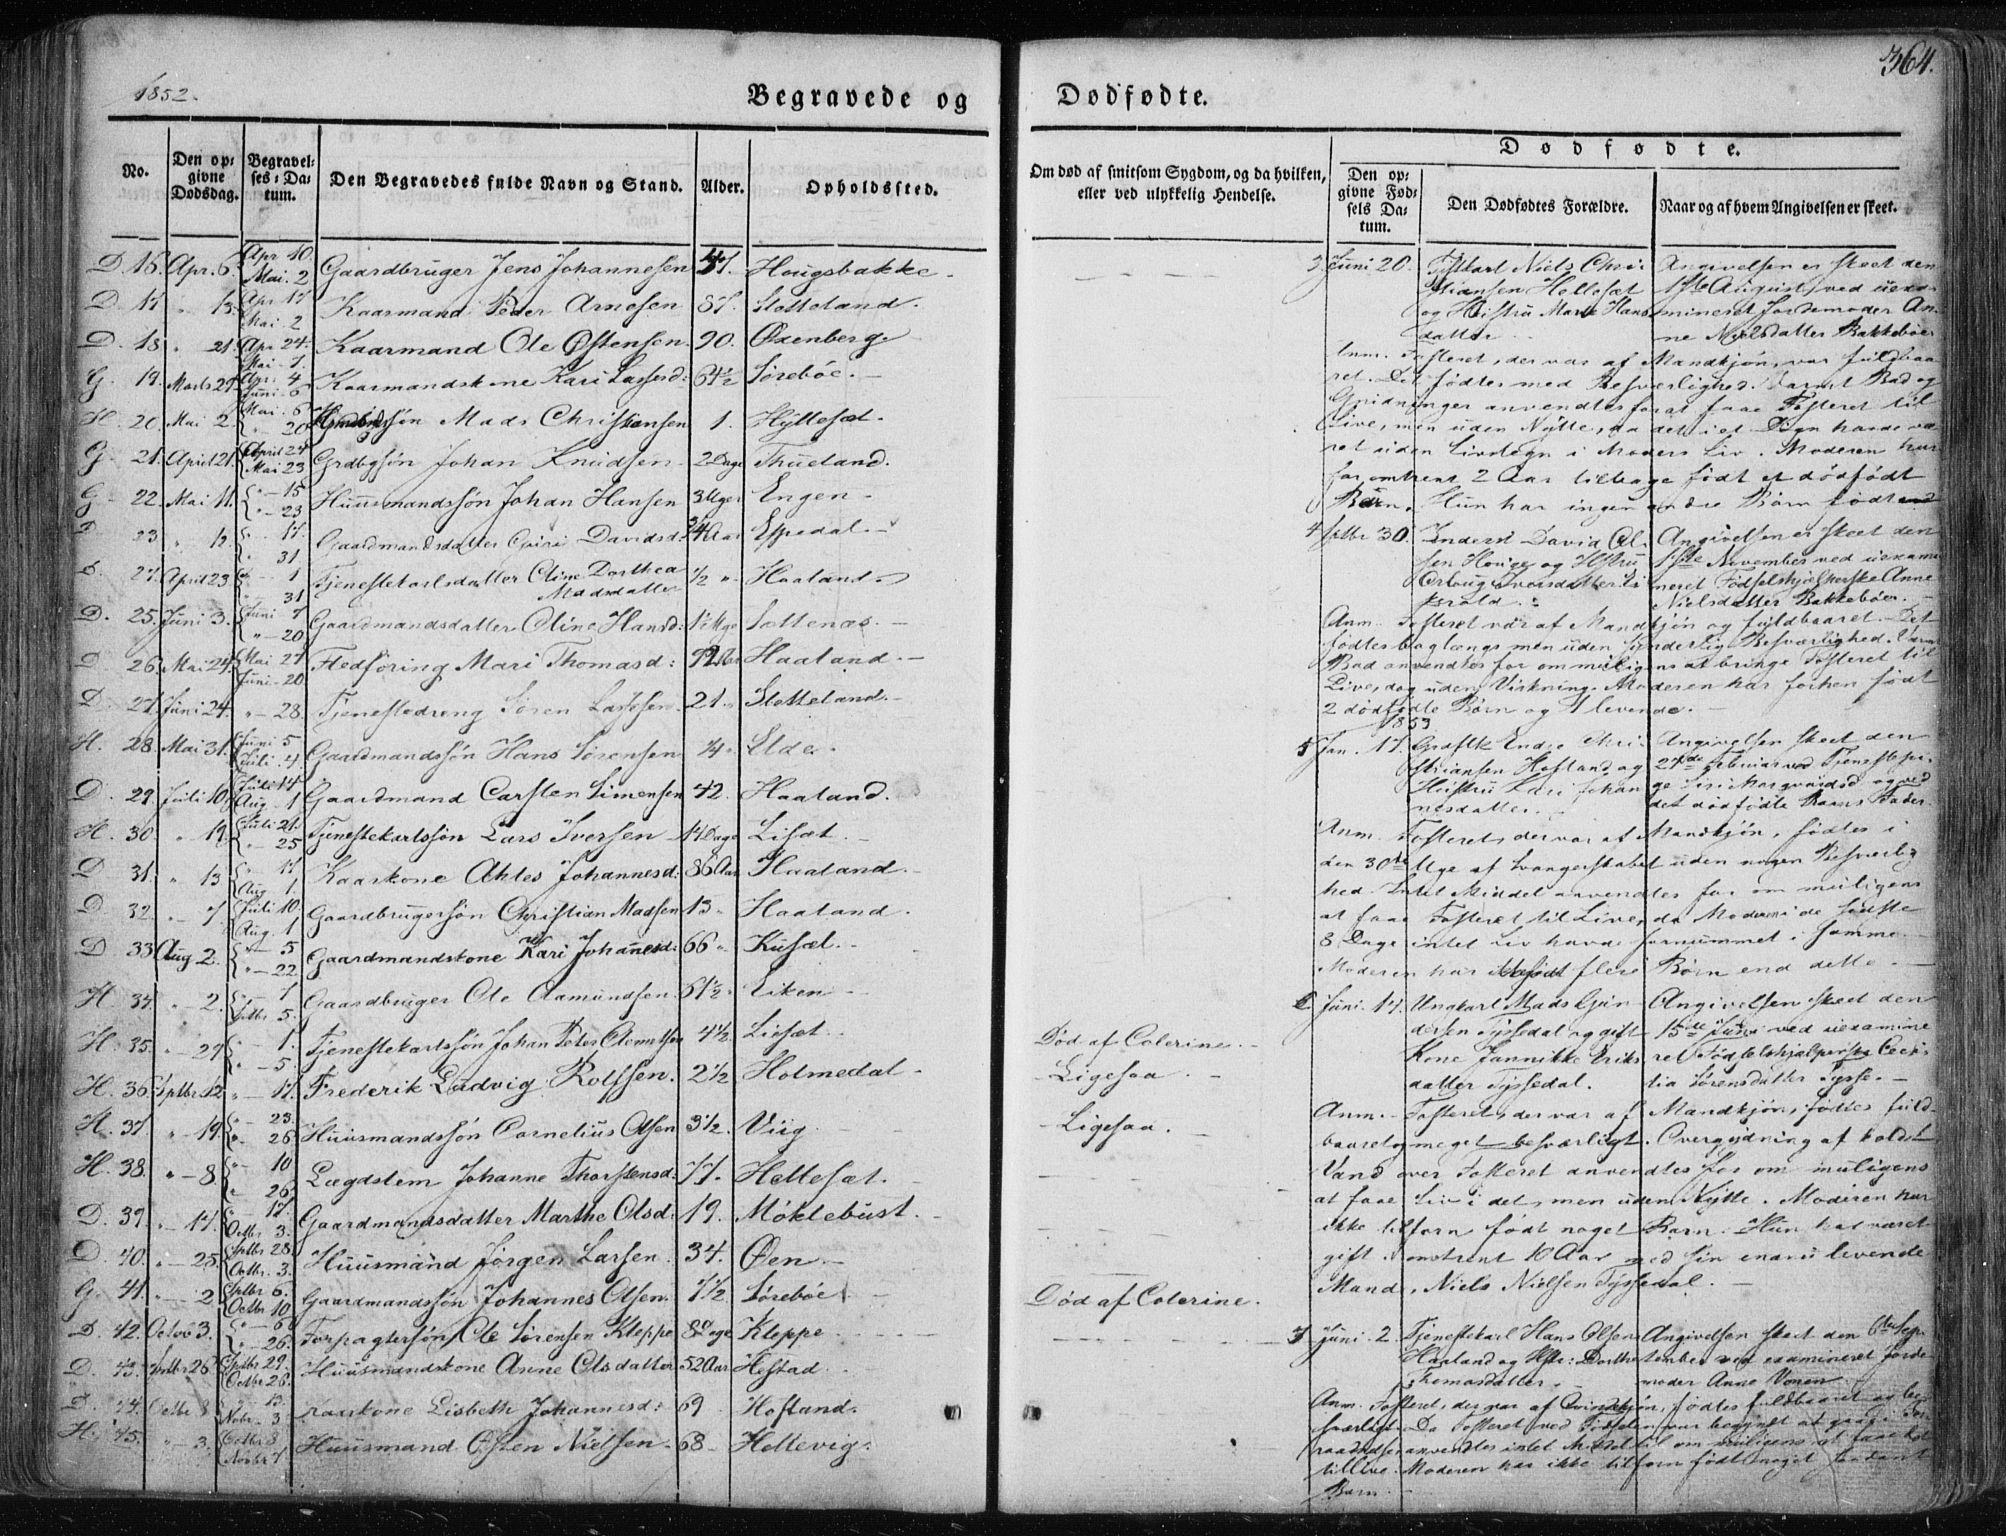 1852.
Begravede og
Dødfødte.
364.
No.
Den opgivne Dødsdag.
Begravelses-Datum.
Den Begravedes fulde Navn og Stand.
Alder.
Opholdssted.
Om død af smitsom Sygdom, og da hvilken, eller ved ulykkelig Hendelse.
Dødfødte.
Den opgivne Fødsels Datum.
Den Dødfødtes Forældre.
Naar og af hvem Angivelsen er skeet.
D. 16. Apr. 6. Apr 10. Mai. 2 Gaardbruger Jens Johannesen Hougsbakke.
D. 17 " 13. Apr 17 Mai 2 Kaarmand Peder Arnesen 87. Slotteland.
D. 18 " 21. Apr 24. Mai. 1. Kaarmand Ole Østensen 90. Øxenberg.
G. 19. Marts 29. Apr. 4 Juni. 6 Kaarmandskone Kari Lassesd: 64½ Sørebøe.
H. 20. Mai 2. Mai. 6 " 20 Mads Christensen 1. Hyllesæt.
G. 21. April 21. April 24 Mai 23 Grdbgsøn Johan Knudsen 2 Dage Thueland.
G. 22. Mai 11. " 15 " 23 Huusmandssøn Johan Hansen 3 Uger Engen
D. 23 " 12 " 17 " 31 Gaardmandsdatter Davidsd: Espedal.
D. April 23 " 1 " 31 Tjenestekarlsdatter Oline Dorthea Madsdatter ½ " Haaland.
D. 25. Juni 3. Juni 7 " 20 Gaardmandsdatter Oline Hansd: Sottenæs.
D. 26. Mai 24. Mai 27 Juni 20 Fledføring Mari Thomasd: Haaland.
D. 27. Juni 24. " 28. Tjenestedreng Søren Lassen 21. " Slotteland.
H. 28. Mai 31. Juni 5 Juli. 4 Gaardmandssøn Hans Sørensen Elde.
D. 29. Juli 10. Juli 14 Aug. 1 Gaardmand Carsten Simensen 42. Haaland.
H. 30. " 19. Juli 21. " 25 Tjenestekarlssøn Lars Iversen 14 Dage Lisæt.
D. 31. " 13 " 17 Aug 1. Kaarkone Johannesd: 86 Aar Haaland.
D. 32. " 7. Juli 10. Aug. 1 Gaardbrugersøn Christian Madsen 13. Haaland.
D. 33. Aug 2. " 5 " 22 Gaardmandskone Kari Johannesd: 66 " Kusæt.
H. 34. " 2. " 7 Sptbr 5 Gaardbruger Ole Aamundsen 61½ Eiken
H. 35. " 29 " 1. " 5 Tjenestekarlssøn Johan Peter Clemetsen 4½ Lisæt. Død af Colerine.
H. 36. Sptbr 12 " 17. Frederik Ludvig Rolfsen. 2½ Holmedal. Ligesaa.
H. 37 " 19. " 23. " 26. Huusmandssøn Cornelius Olsen 3½ Viig Ligesaa.
H. 38. " 8 " 10 " 26. Lægdslem Johanne Thorstensd: 77. Hellesæt.
D. 39. " 17 " 17. Octbr 3. Gaardmandsdatter Marthe Olsd: 19. Møklebust.
D. 40. " 25. Sptbr 28. Octbr. 3. Huusmand Jørgen Larsen. 34. Øen.
G. 41. " 2 Sptbr 6. Octbr 10 Gaardmandssøn Johannes Olsen. 7½ Sørebøe Død af Colerine.
D. 42. Octbr 3. " 6 " 26. Forpagtersøn, Ole Sørensen Kleppe 8 Dage Kleppe
D. 43. Sptbr 26 Sptbr 29. Octbr 26. Huusmandskone Anne Olsdatter 52 Aar Hestad.
D. 44. Octbr 8 " 13. Nobr. 3 Kaarkone Lisbeth Johannesd: 69 Hofland.
H. 45. " 3. Octbr 8 Novbr 7 Huusmand Østen Nielsen. 68 Hellevig.
3 Juni 20. Fæstkarl Niels Christiansen Hellesæt og Hustru Marie Hansdatter
Angivelsen er skeet den 1ste August, ved uexamineret Jordemoder Anne Nielsdatter Bakkebøen
Anm. Fosteret, der var af Mandkjøn, var fuldbaaret. Det fødtes med Besværlighed. Varmt Bad og
Gnidninger anvendtes for at faae Fosteret til
Live, men uden Nytte, da det i et Døgn havde været
uden Livstegn i Moders Liv. Moderen har
for omtrent 2 Aar tilbage født et dødfødt
Barn. Hun har ingen andre Børn født
4 Sptbr 30. Inderst David Olsen Houge og Hstru
Angivelsen er skeet den 1ste November ved uexamineret Fødselshjelperske Anne Nielsdatter Bakkebøen.
Anm. Fosteret var af Mandkjøn og fuldbaaret. Det
fødtes baglængs men uden synderlig Besværlighed. Varmt
Bad anvendtes for om muligens at bringe Fosteret til
Live, dog uden Virkning. Moderen har forhen født
2 dødfødte Børn og 1 levende.
1853
5 Jan. 17. Endre Christiansen Hofland og Hustru Kari Johannesdatter.
Angivelsen skeet den 27de Februar ved Tjenestepige Siri Margvardsd og ved det dødfødte Barns Fader.
Anm. Fosteret, der var af Mandkjøn, fødtes i
den 30te Uge af Svangerskabet uden nogen Besværlighed. Intet Middel anvendtes for om muligens
at faae Fosteret til Live, da Moderen i de sidste
8 Dage intet Liv havde fornummet i samme.
Moderen har ikke født flere Børn end dette.
6 Juni. 14. Ungkarl Mads Gundersen Tyssedal og gift Kone Jannikke Eriksdatter Tyssedal.
Angivelsen skeet den 15de Juni ved uexamineret Fødselshjelperske Cecilia Sørensdatter Tysse.
Anm. Fosteret, der var af Mandkjøn, fødtes fuldbaaret og meget besværligt. Overgydning af koldt
Vand over Fosteret anvendtes for om muligens
at faae Liv i det, men uden Nytte. Moderen har
ikke tilforn født noget Barn. Hun har været
gift omtrent 10 Aar med sin endnu levende
Mand, Niels Nielsen Tyssedal.
7 Juni. 2. Tjenestekarl Hans Olsen Haaland og Hstr: Dorthe Thomasdatter.
Angivelsen skeet den 6te September ved examineret Jordemoder Anne Vonen.
Anm. Fosteret, der var af Qvindekjøn, fødtes fuldbaaret og besværligt. Da Fosteret ved Fødselen var begyndt at gaae i Forraadnelse anvendtes intet Middel til om muligens at faae det
tillive. Moderen har ikke tilforn født noget saadant
Barn.